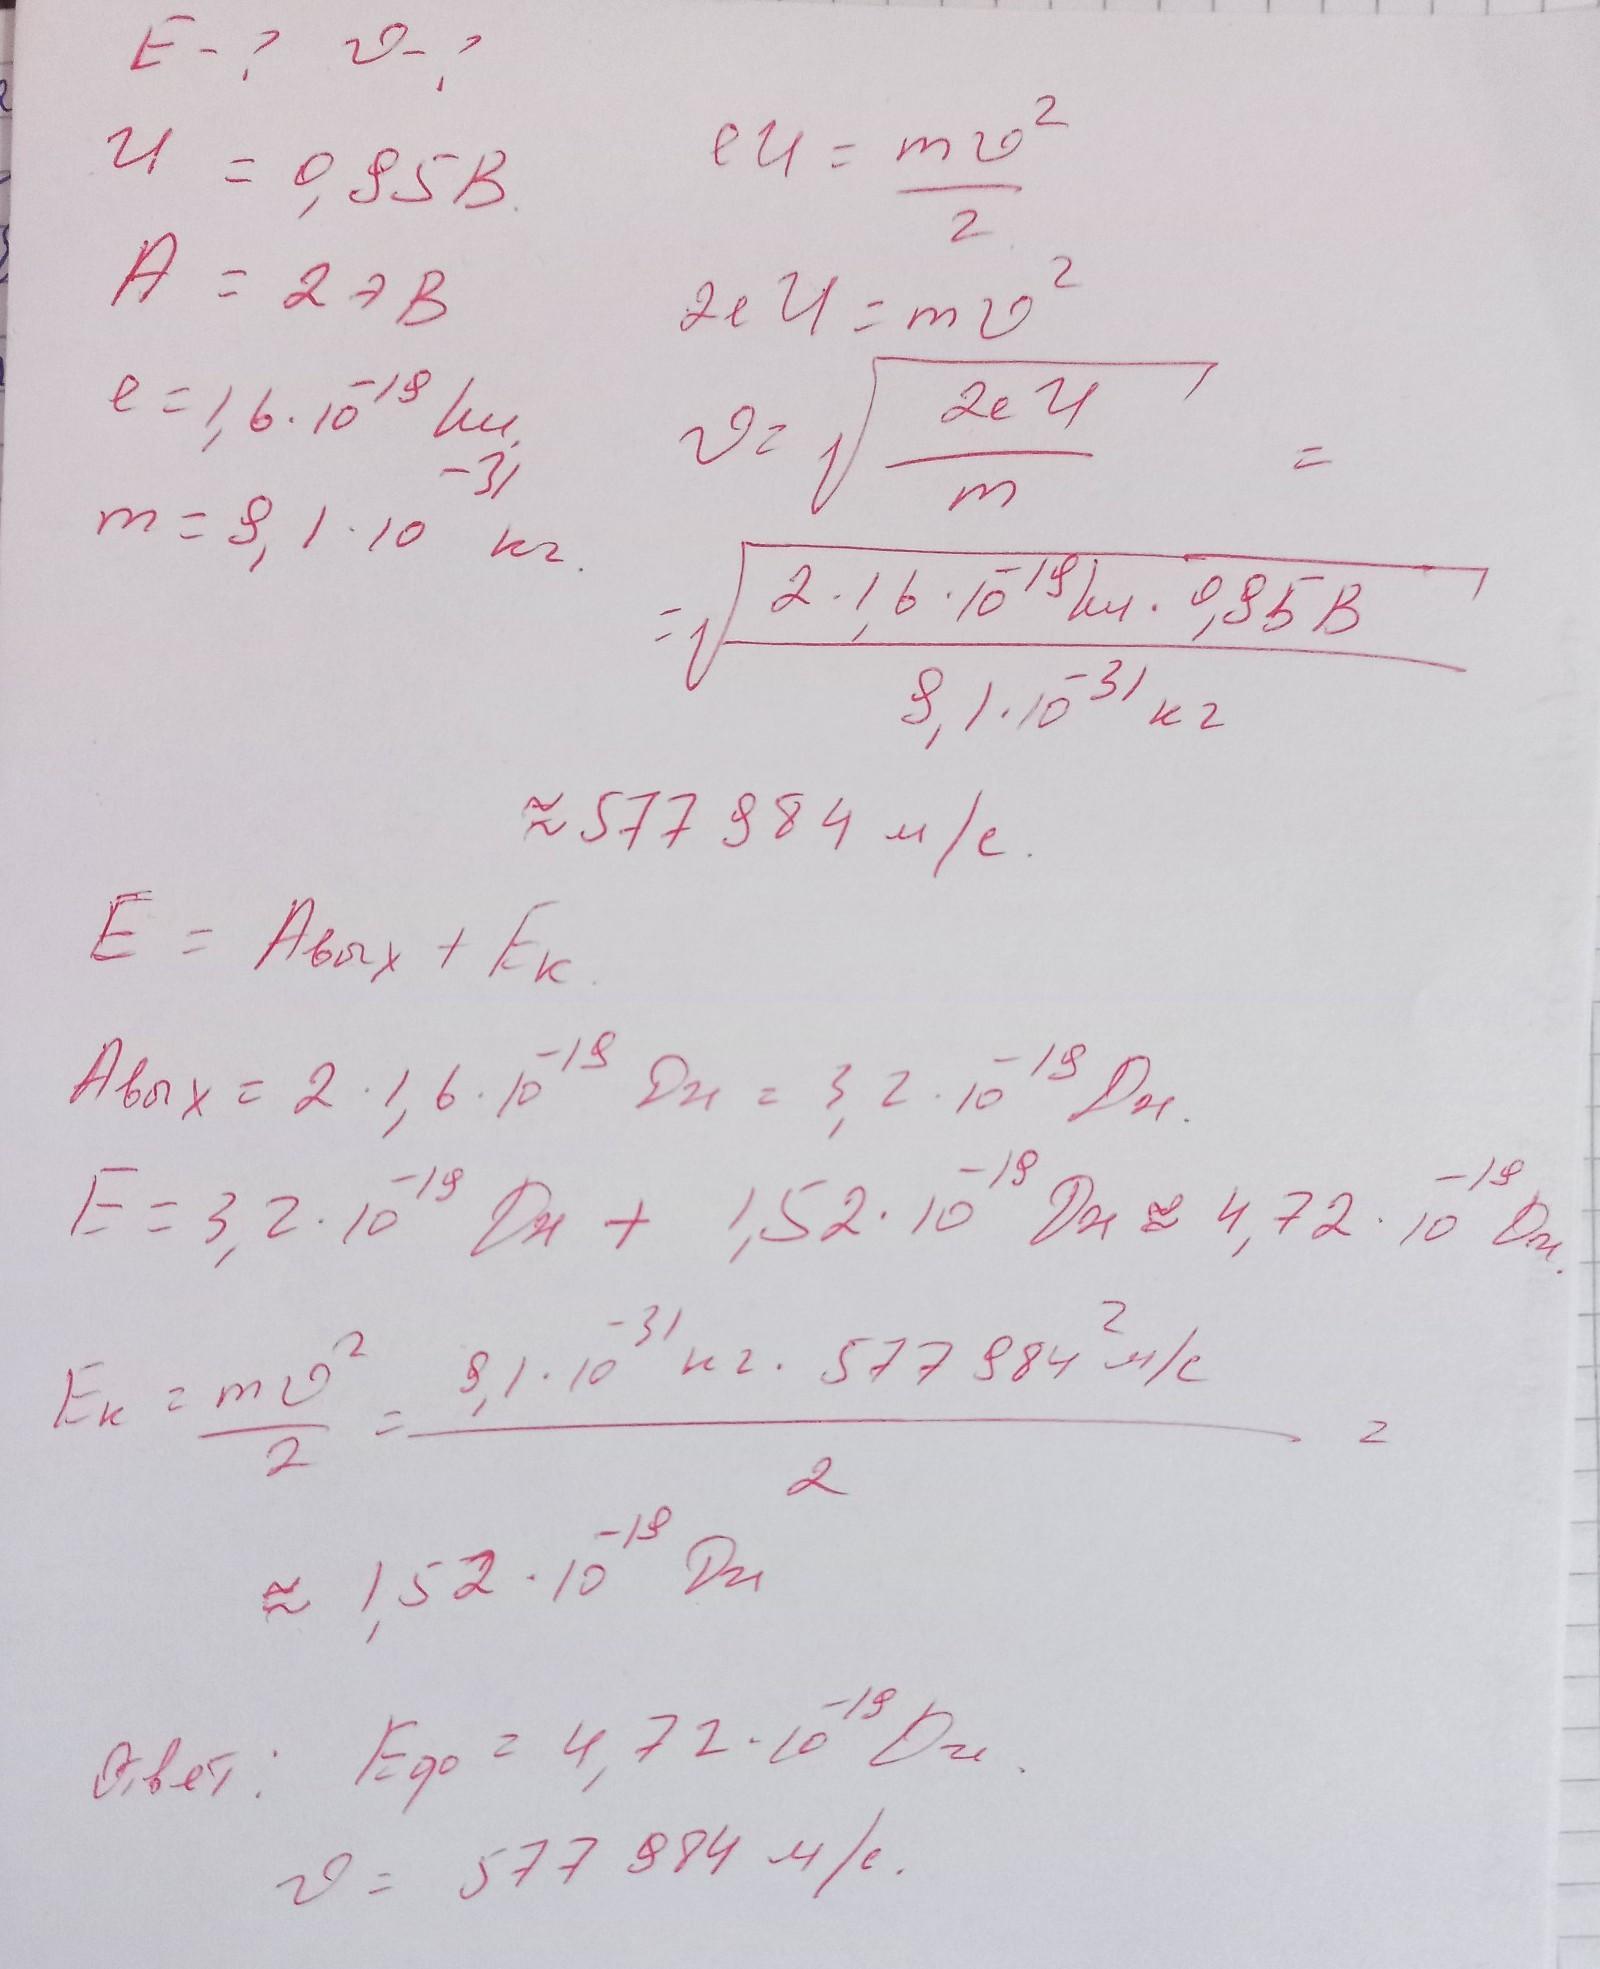 E - ? υ - ?
U = 0,95 В.
A = 2 эВ
e = 1,6 · 10⁻¹⁹ Кл.
m = 9,1 · 10⁻³¹ кг.
eU = mυ²/2
2eU = mυ²
υ = √(2eU/m) =
= √(2 · 1,6 · 10⁻¹⁹ Кл · 0,95 В / 9,1 · 10⁻³¹ кг)
≈ 577 984 м/с.
E = Aвых + Eк.
Aвых = 2 · 1,6 · 10⁻¹⁹ Дж = 3,2 · 10⁻¹⁹ Дж.
E = 3,2 · 10⁻¹⁹ Дж + 1,52 · 10⁻¹⁹ Дж ≈ 4,72 · 10⁻¹⁹ Дж.
Eк = mυ²/2 = 9,1 · 10⁻³¹ кг · 577 984² м/с / 2 =
≈ 1,52 · 10⁻¹⁹ Дж
Ответ: Eф = 4,72 · 10⁻¹⁹ Дж.
υ = 577 984 м/с.